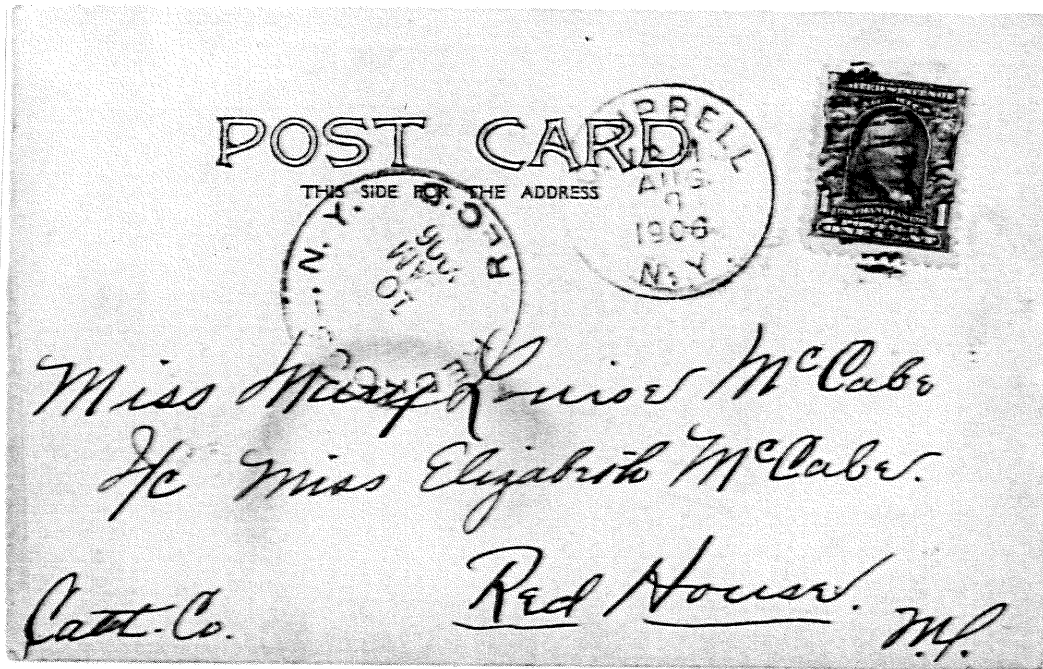 POST CARD
THIS SIDE FOR THE ADDRESS
AUG
1906
N.Y.
REC'D.
N.Y.
10
AM
1906
Miss Mary Louise McCabe
℅ Miss Elizabeth McCabe.
Red House.
Catt. Co.
N.Y.